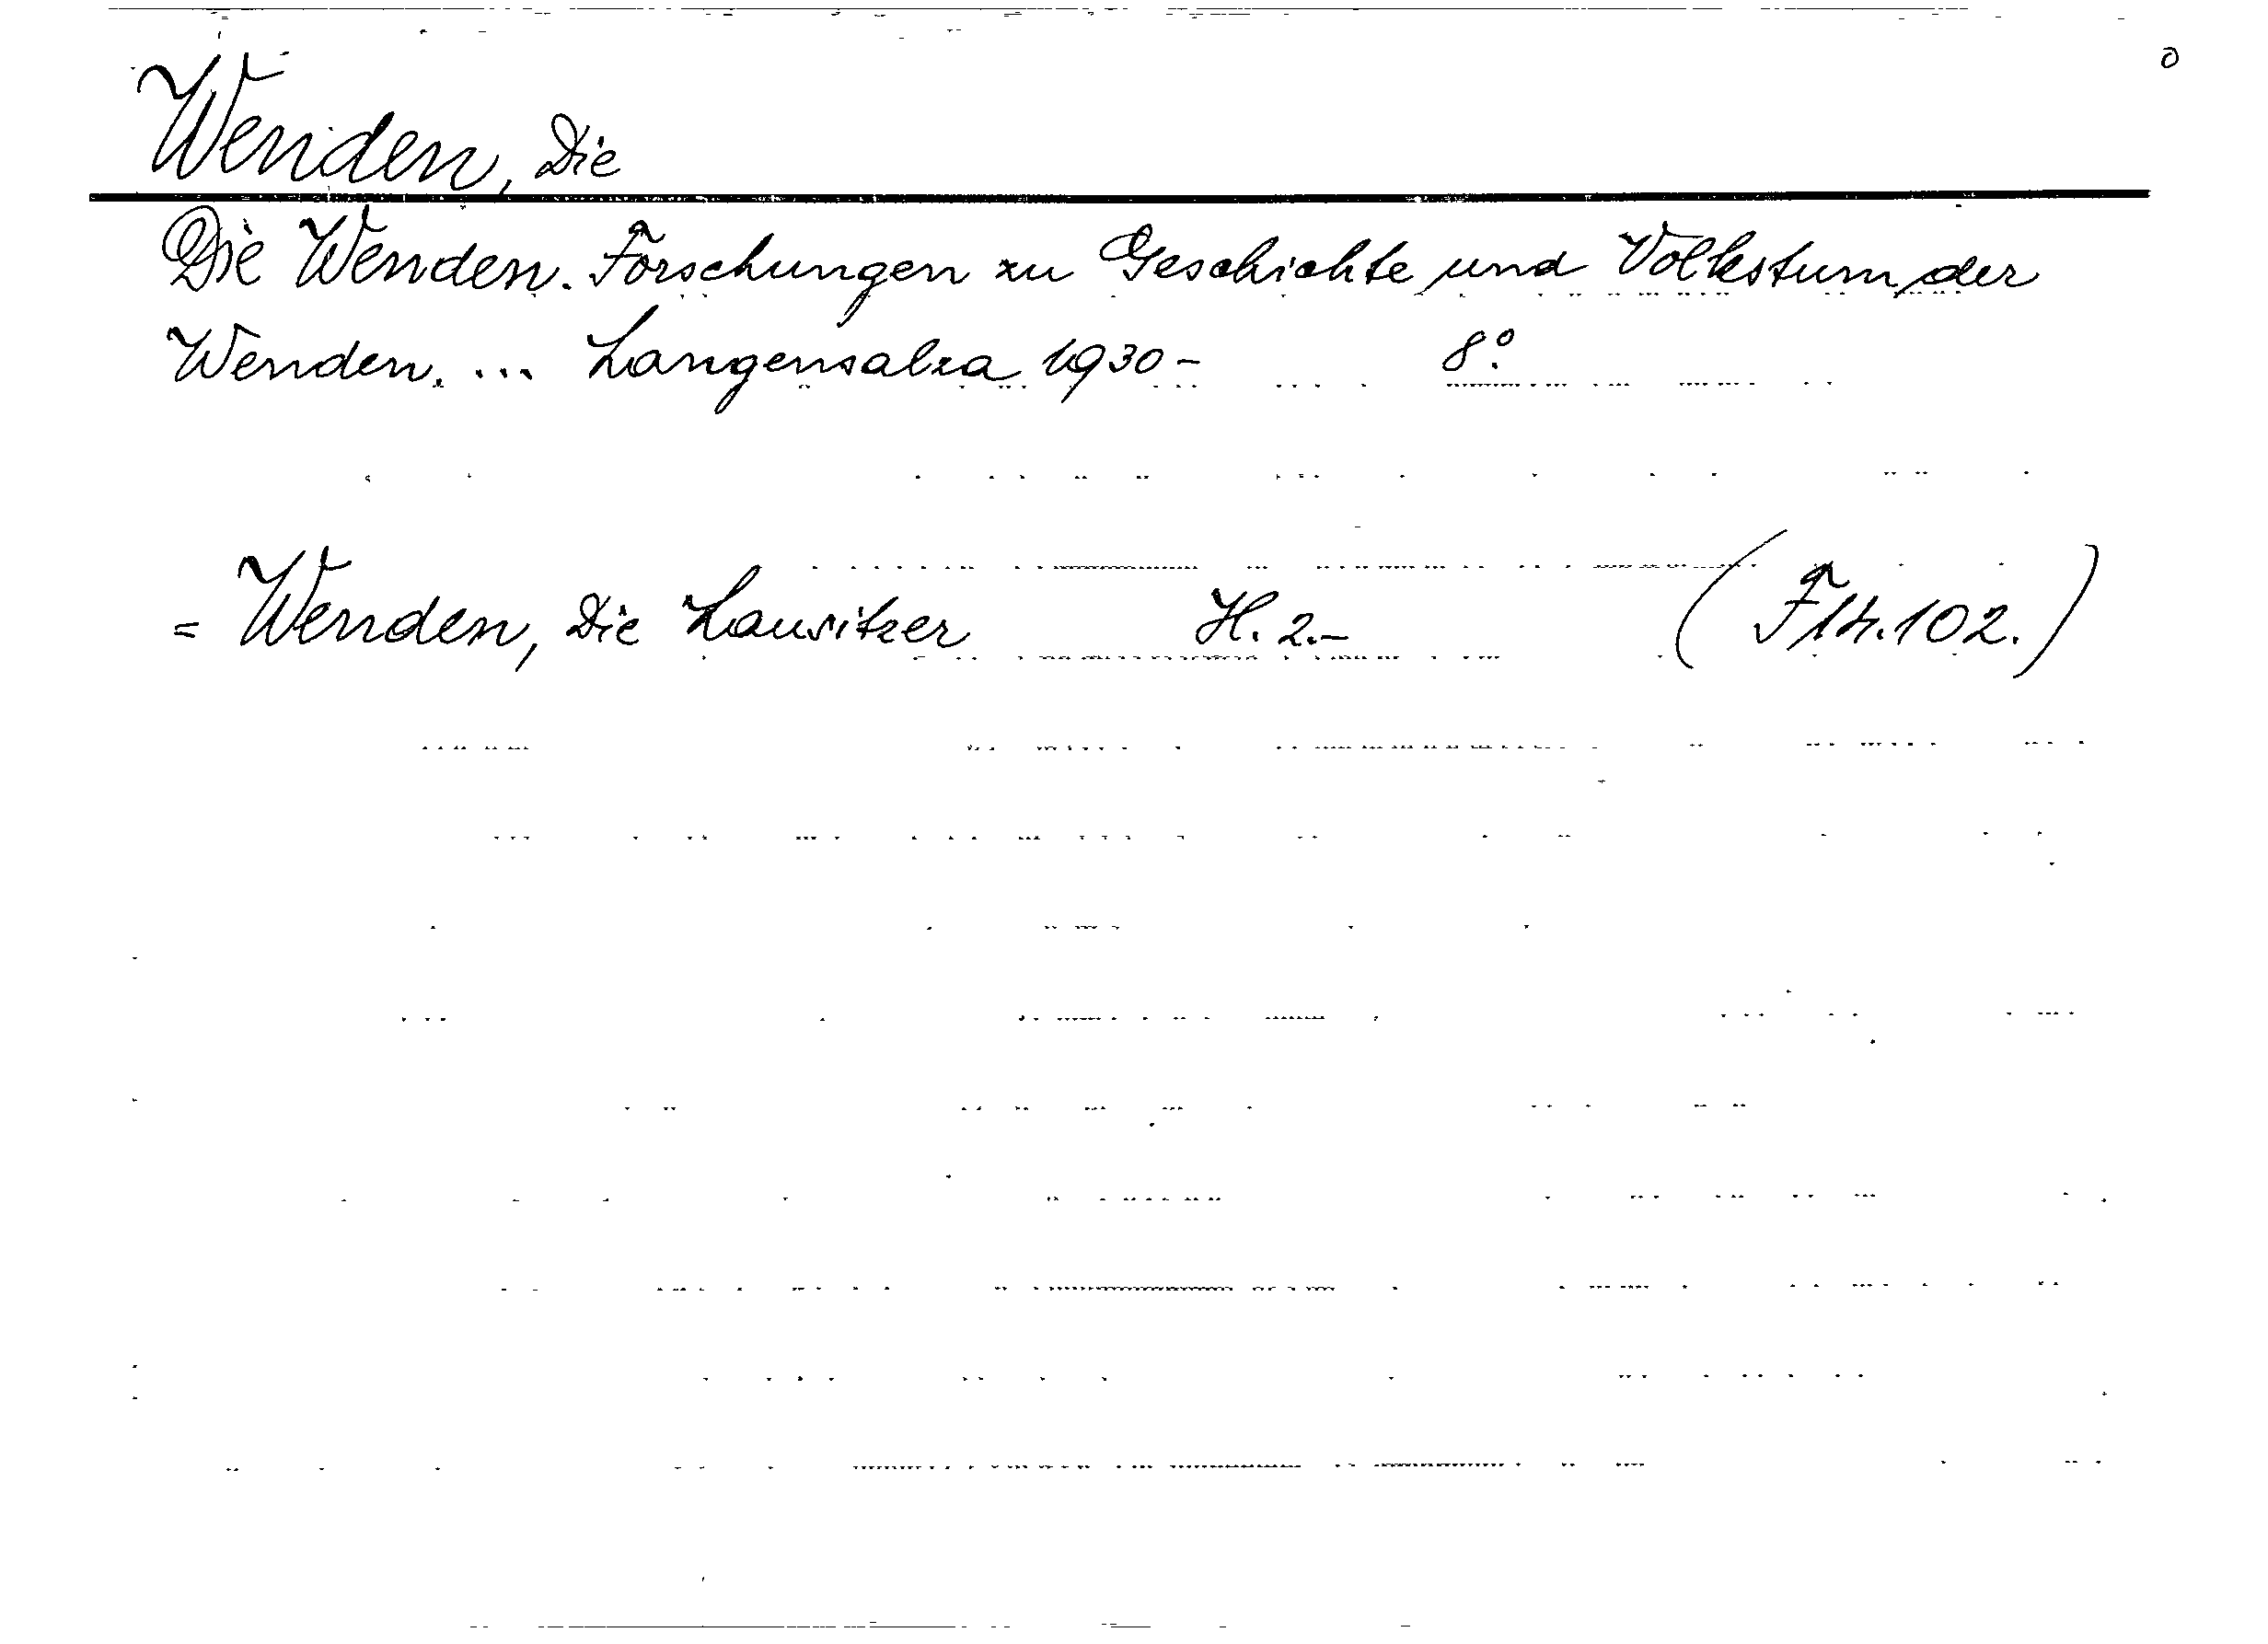 o
Wenden, Die
Die Wenden. Forschungen zu Geschichte und Volkstum der
Wenden. ... Langensalza 1930- 8°.
= Wenden, Die Lausitzer H. 2.- ( 102.)